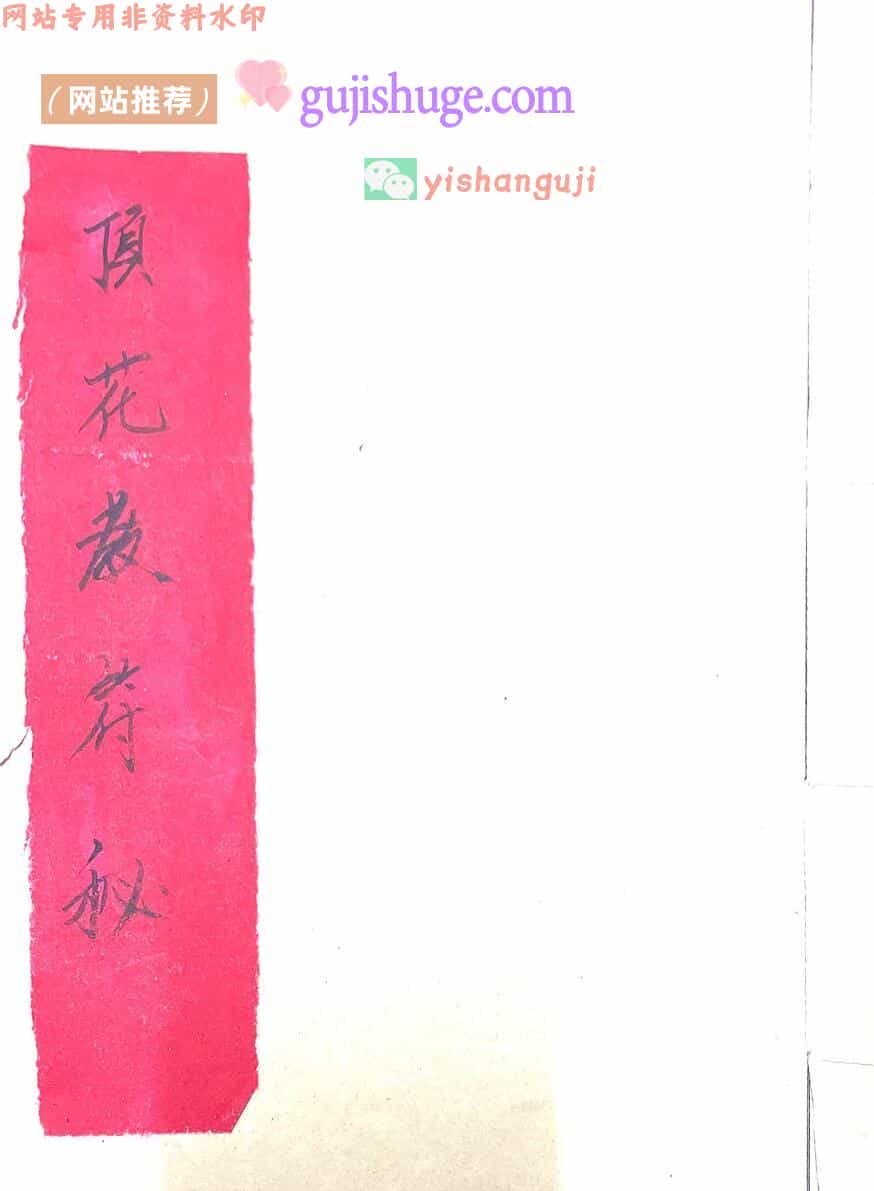 网站专用非资料水印
（网站推荐）
gujishuge.com
yishanguji
頂花教符秘